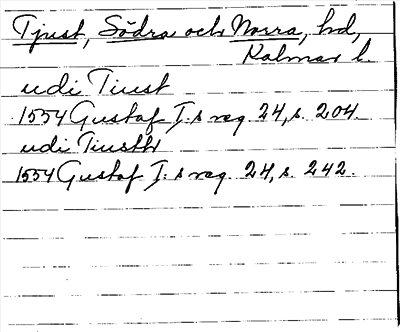 Tjust, Södra och Norra, hd,
Kalmar l.
udi Tiust
1554 Gustaf I:s reg. 24, s. 204.
udi Tiustth
1554 Gustaf I:s reg. 24, s. 242.